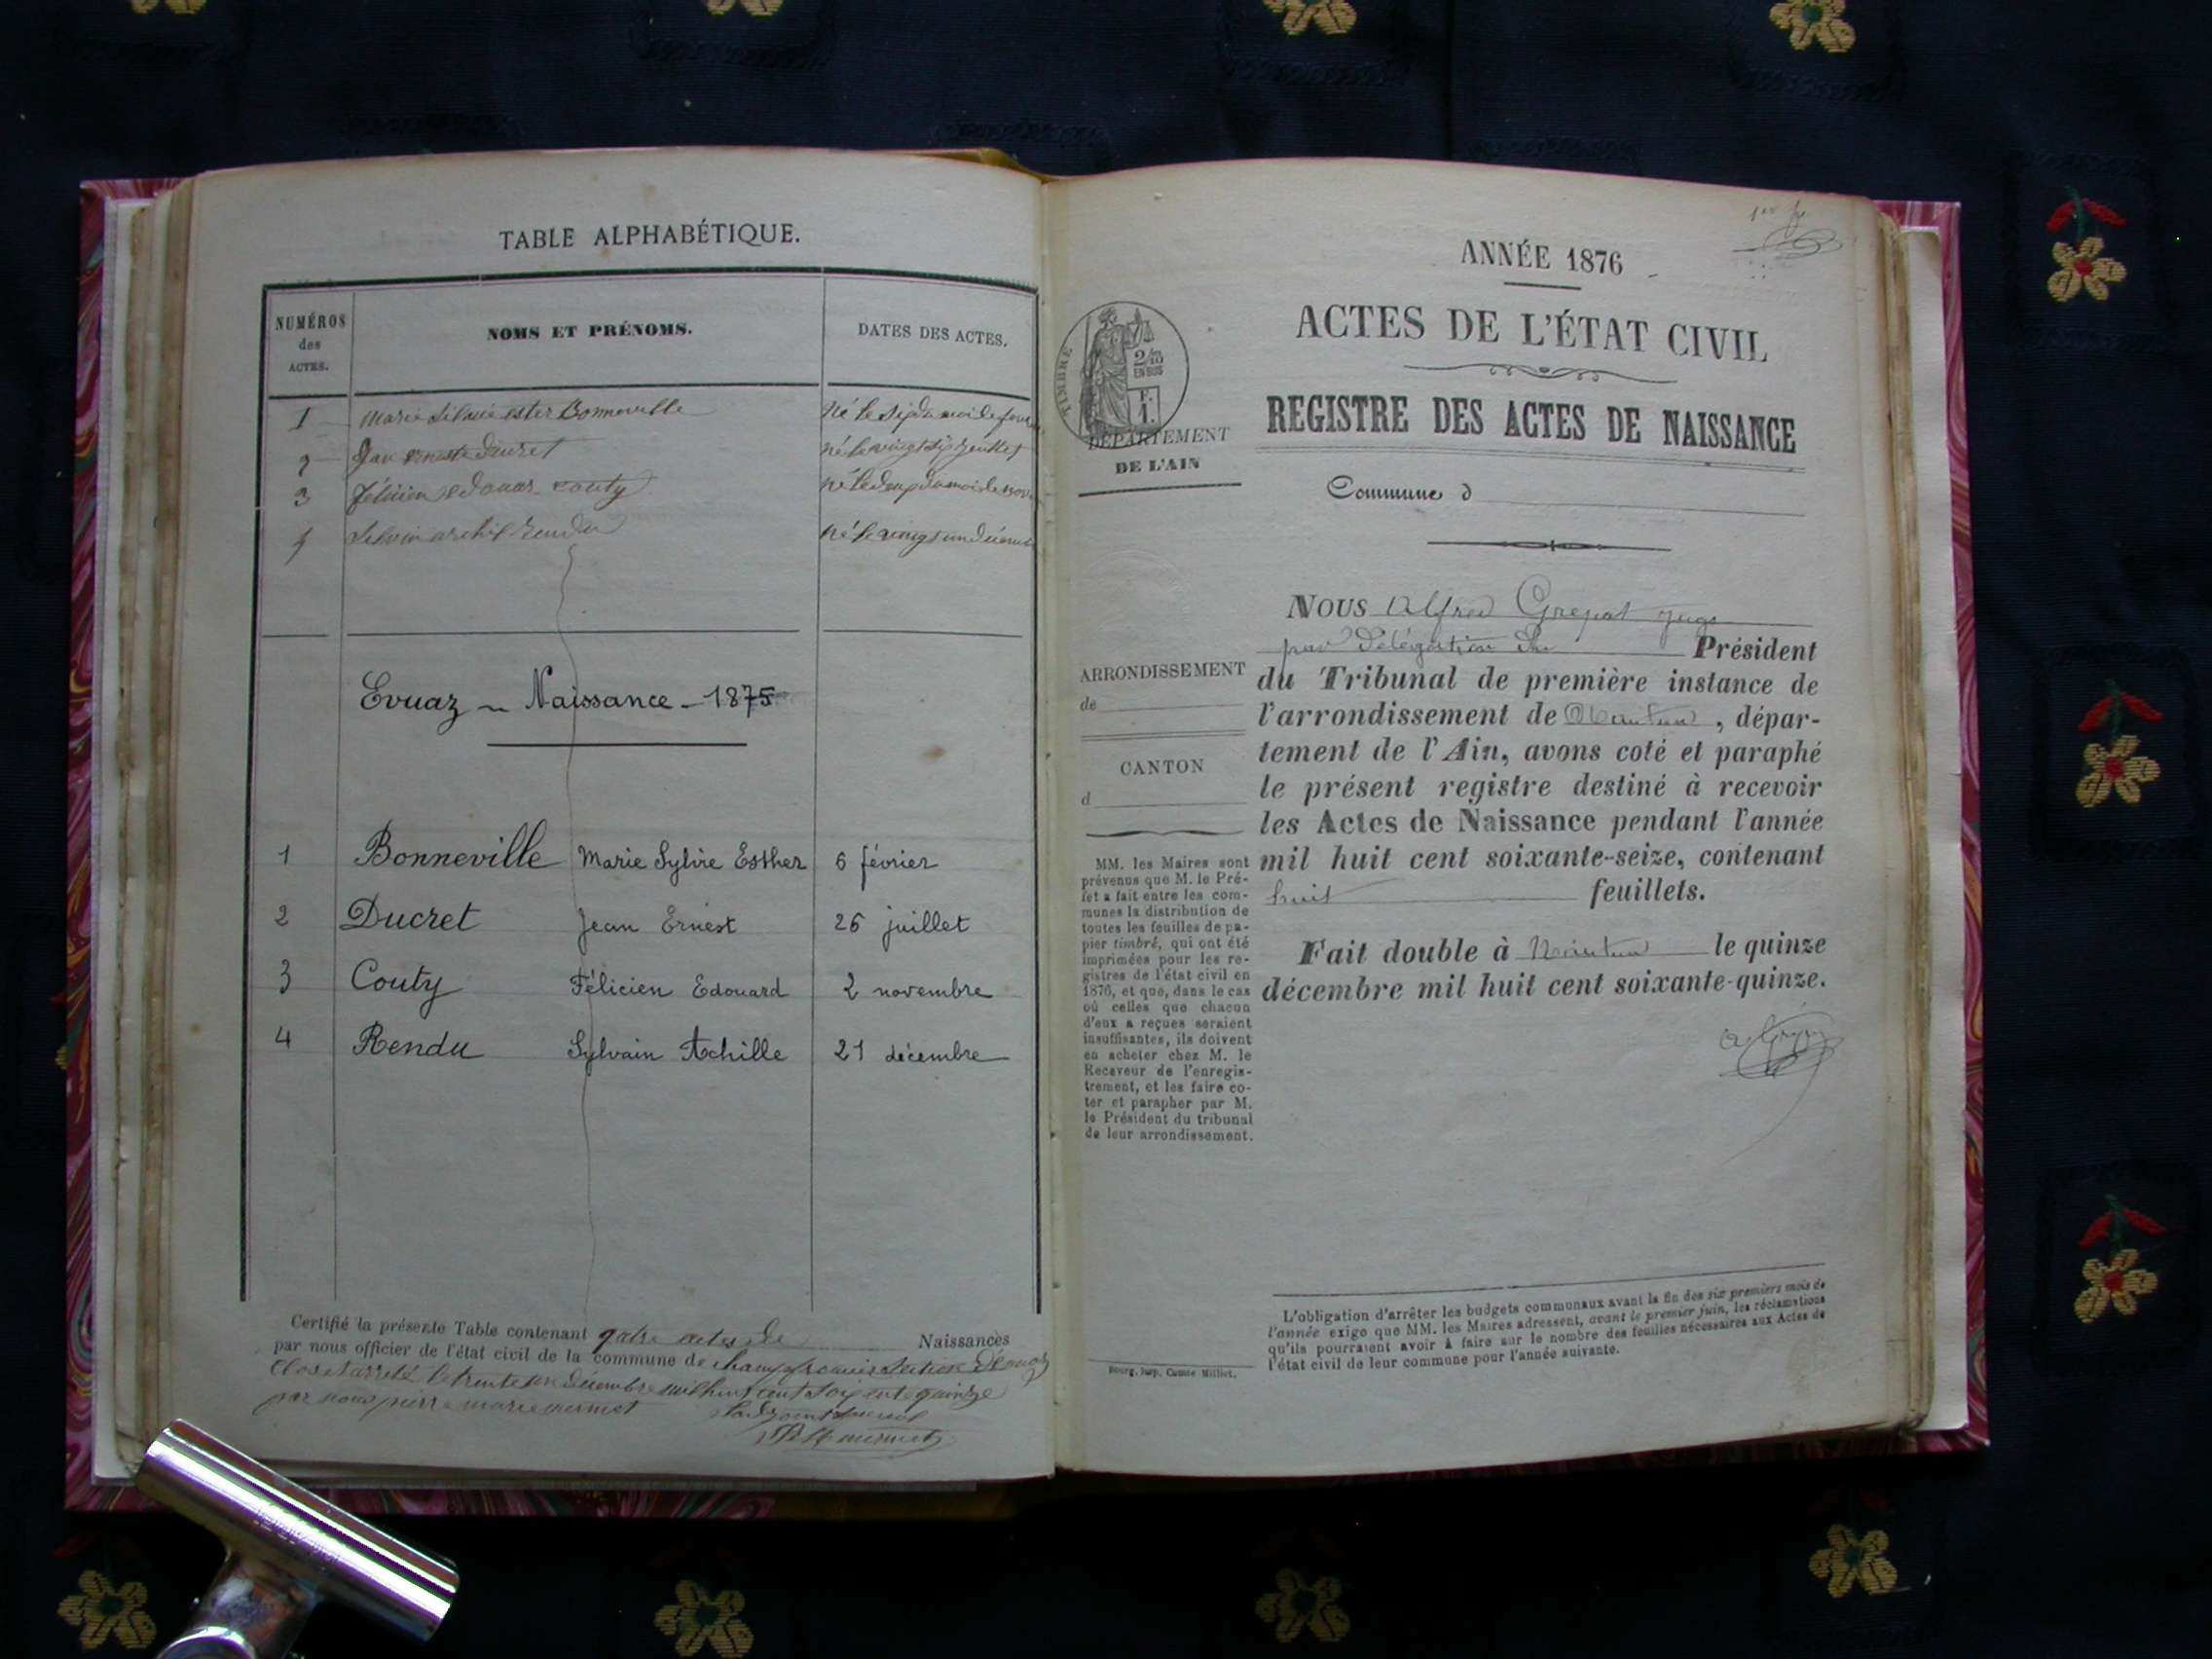 TABLE ALPHABÉTIQUE.
NUMÉROS
des
ACTES.
NOMS ET PRÉNOMS.
DATES DES ACTES.
1 Marie Silvie ester Bonneville né le six du moi de
2 Jan né le vingt six
3 félicien edouar couty né le deux du moi de nov
4 Silvin rendu né le vingt un
Evuaz - Naissance - 1875
1 Bonneville Marie Sylvie Esther 6 février
2 Ducret Jean Ernest 26 juillet
3 Couty Félicien Edouard 2 novembre
4 Rendu Sylvain Achille 21 décembre
Certifié la présente Table contenant actes de Naissances
par nous officier de l'état civil de la commune de champfromier section
Clos et arreté le trente un décembre mil huit cent quinze
par nous pierre marie
1er
ANNÉE 1876
ACTES DE L'ÉTAT CIVIL
REGISTRE DES ACTES DE NAISSANCE
TIMBRE
2/10
EN SUS
F.
1.
DÉPARTEMENT
DE L'AIN
Commune d
ARRONDISSEMENT
de
CANTON
d
MM. les Maires sont
prévenus que M. le Pré-
fet a fait entre les com-
munes la distribution de
toutes les feuilles de pa-
pier timbré, qui ont été
imprimées pour les re-
gistres de l'état civil en
1876, et que, dans le cas
où celles que chacun
d'eux a reçues seraient
insuffisantes, ils doivent
en acheter chez M. le
Receveur de l'enregis-
trement, et les faire co-
ter et parapher par M.
le Président du tribunal
de leur arrondissement.
NOUS Alfred juge
par délégation du Président
du Tribunal de première instance de
l'arrondissement de Nantua, dépar-
tement de l'Ain, avons coté et paraphé
le présent registre destiné à recevoir
les Actes de Naissance pendant l'année
mil huit cent soixante-seize, contenant
huit feuillets.
Fait double à Nantua le quinze
décembre mil huit cent soixante-quinze.
L'obligation d'arrêter les budgets communaux avant la fin des six premiers mois de
l'année exige que MM. les Maires adressent, avant le premier juin, les réclamations
qu'ils pourraient avoir à faire sur le nombre des feuilles nécessaires aux Actes de
l'état civil de leur commune pour l'année suivante.
Bourg, Imp. Comte Milliet.